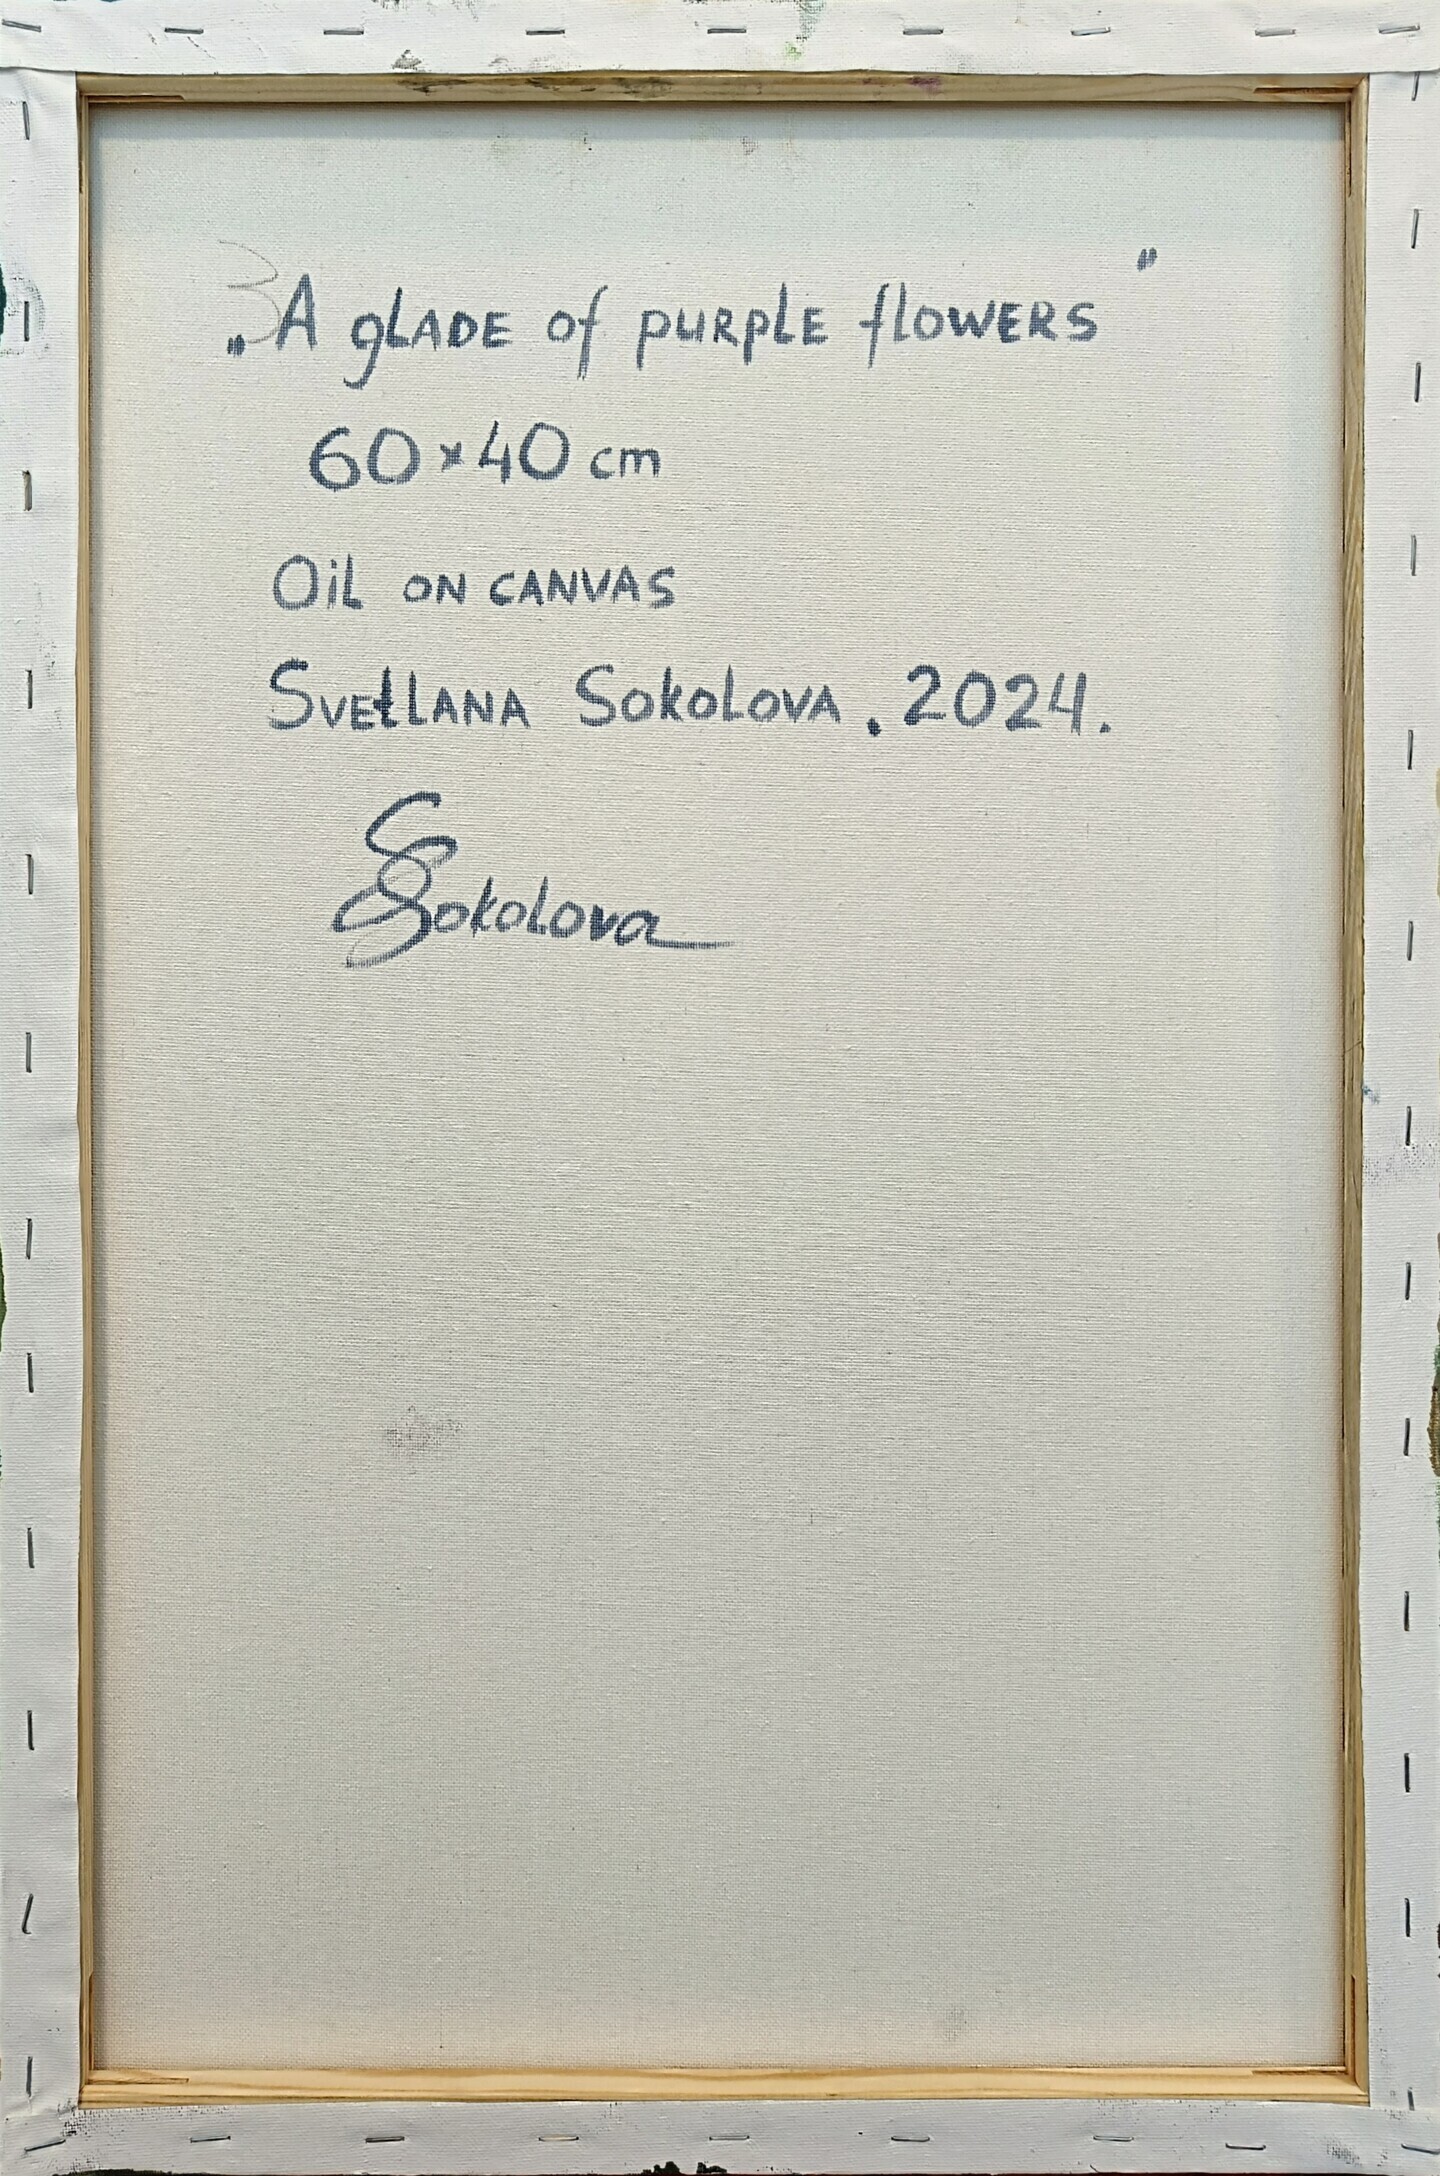 „A glade of purple flowers"
60×40 cm
Oil on canvas
Svetlana Sokolova. 2024.
S Sokolova